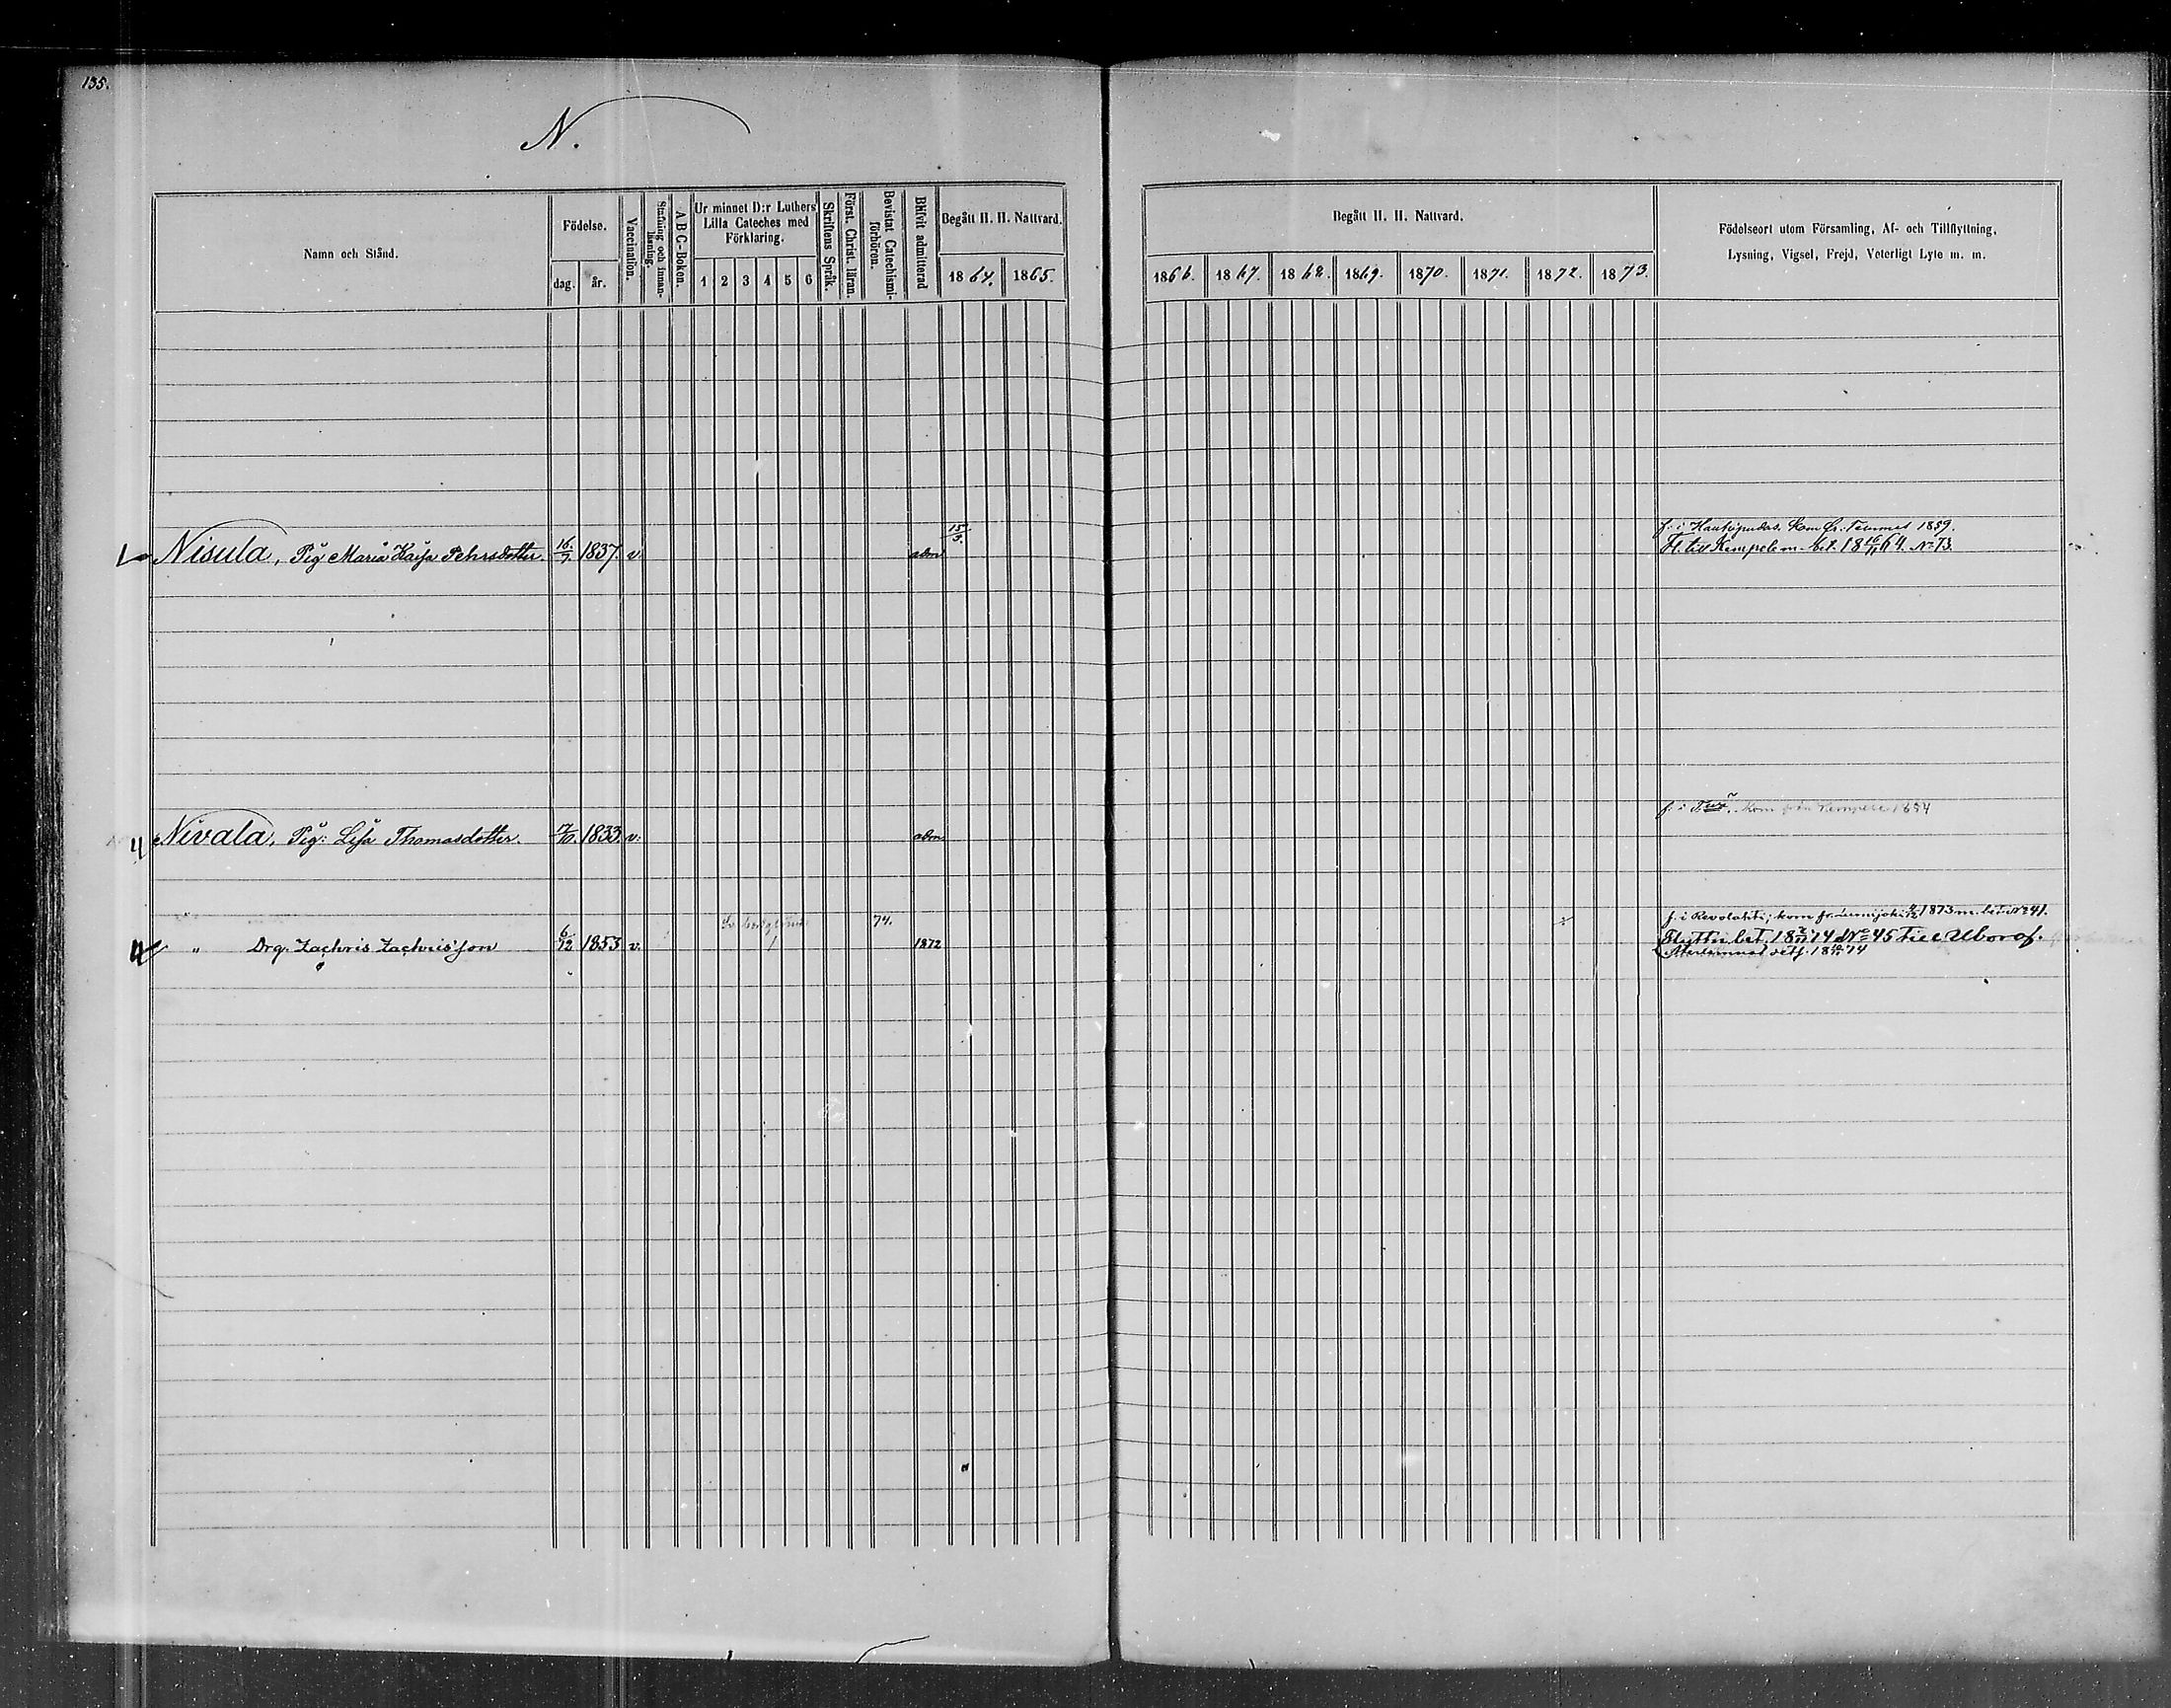 135.
N.
Namn och Stånd.
Födelse.
dag.
år.
Vaccination.
Stafning och innan-läsning.
A B C-Boken.
Ur minnet D:r Luthers
Lilla Cateches med
Förklaring.
1 2 3 4 5 6
Skriftens Språk.
Först. Christ. läran.
Bevistat Catechismi-förhören.
Blifvit admitterad
Begått H. H. Nattvard.
1864. 1865.
Begått H. H. Nattvard.
1866. 1867. 1868. 1869. 1870. 1871. 1872. 1873.
Födelseort utom Församling, Af- och Tillflyttning,
Lysning, Vigsel, Frejd, Veterligt Lyte m. m.
15/3. f. i Haukipudas. Kom fr. Temmes 1859.
Nisula, Pig Maria Kajsa Pehrsdotter. 16/7 1837. v. adm Fl. till Kempele m. bet. 18 64. No 73.
f. i Kom från Kempele 1854
Nivala, Pig: Lisa Thomasdotter. 1833. v. adm
74. f. i Revolahti; kom fr. Lumijoki 1873 m. bet. No 41.
" Drg. Zachris Zachrisson 6/12 1853 v. 1 1872 Flyttn. bet. 18 74 No 45 till Uborg.
18 74